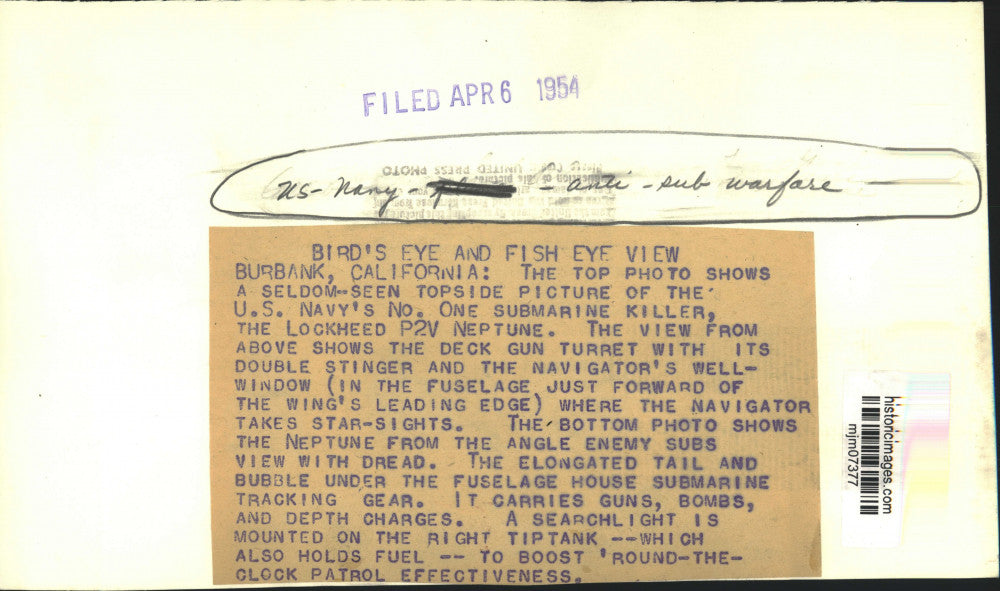 FILED APR 6 1954
US - Navy - - anti - sub warfare
BIRD'S EYE AND FISH EYE VIEW
BURBANK, CALIFORNIA: THE TOP PHOTO SHOWS
A SELDOM-SEEN TOPSIDE PICTURE OF THE
U.S. NAVY'S NO. ONE SUBMARINE KILLER,
THE LOCKHEED P2V NEPTUNE. THE VIEW FROM
ABOVE SHOWS THE DECK GUN TURRET WITH ITS
DOUBLE STINGER AND THE NAVIGATOR'S WELL-
WINDOW (IN THE FUSELAGE JUST FORWARD OF
THE WING'S LEADING EDGE) WHERE THE NAVIGATOR
TAKES STAR-SIGHTS. THE BOTTOM PHOTO SHOWS
THE NEPTUNE FROM THE ANGLE ENEMY SUBS
VIEW WITH DREAD. THE ELONGATED TAIL AND
BUBBLE UNDER THE FUSELAGE HOUSE SUBMARINE
TRACKING GEAR. IT CARRIES GUNS, BOMBS,
AND DEPTH CHARGES. A SEARCHLIGHT IS
MOUNTED ON THE RIGHT TIPTANK --WHICH
ALSO HOLDS FUEL -- TO BOOST 'ROUND-THE-
CLOCK PATROL EFFECTIVENESS.
historicimages.com
mjm07377